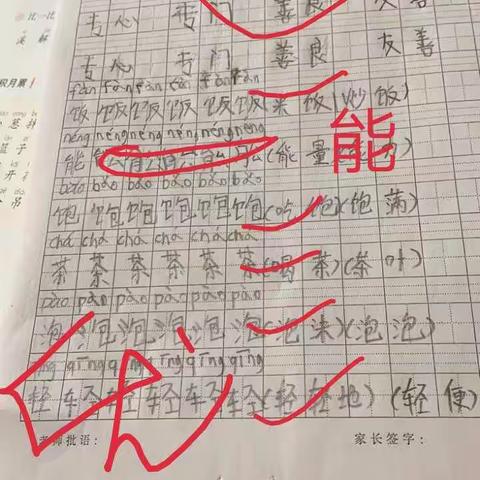 专心 专门 善良 友善
专心 专门 善良 友善
fàn fàn fàn fàn fàn
饭 饭 饭 饭 饭 饭 米饭(炒饭)
néng néng néng néng néng néng
能 (能量
能
bǎo bǎo bǎo bǎo bǎo bǎo
饱 饱 饱 饱 饱 饱(吃饱)(饱满)
chá chá chá chá chá chá
茶 茶 茶 茶 茶 茶(喝茶)(茶叶)
pào pào pào pào pào pào
泡 泡 泡 泡 泡 泡(泡沫)(泡泡)
qīng qīng qīng qīng qīng
轻 轻 轻 轻 轻 轻(轻轻地)(轻便)
老师批语: 家长签字: